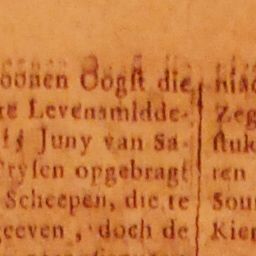 oonen Oogſt die
re Levensmidde-
15 Juny van Sa-
Pryſen opgebragt
Scheepen, die te
geeven, doch de
Zeg
ſtuk
ren
Sour
Kier